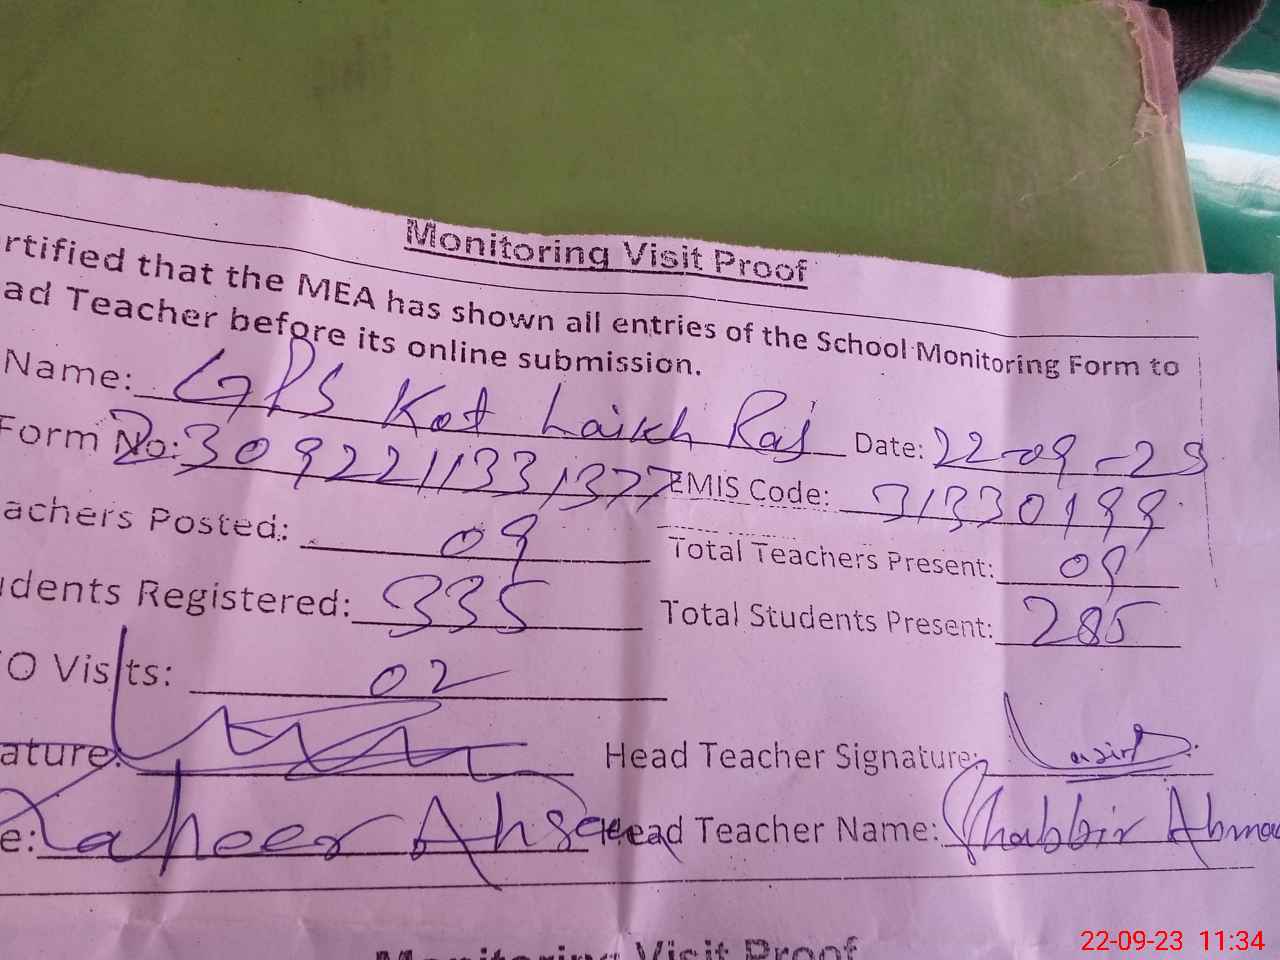 Monitoring Visit Proof
rtified that the MEA has shown all entries of the School Monitoring Form to
ad Teacher before its online submission.
Name: GPS Kot Laikh Raj Date: 22-09-23
Form No: 23092211331377 EMIS Code: 31330199
achers Posted: 09 Total Teachers Present: 09
udents Registered: 335 Total Students Present: 285
O Visits: 02
ature: Head Teacher Signature:
e: Zaheer Ahsan Head Teacher Name: Shabbir Ahmad
Monitoring Visit Proof
22-09-23 11:34